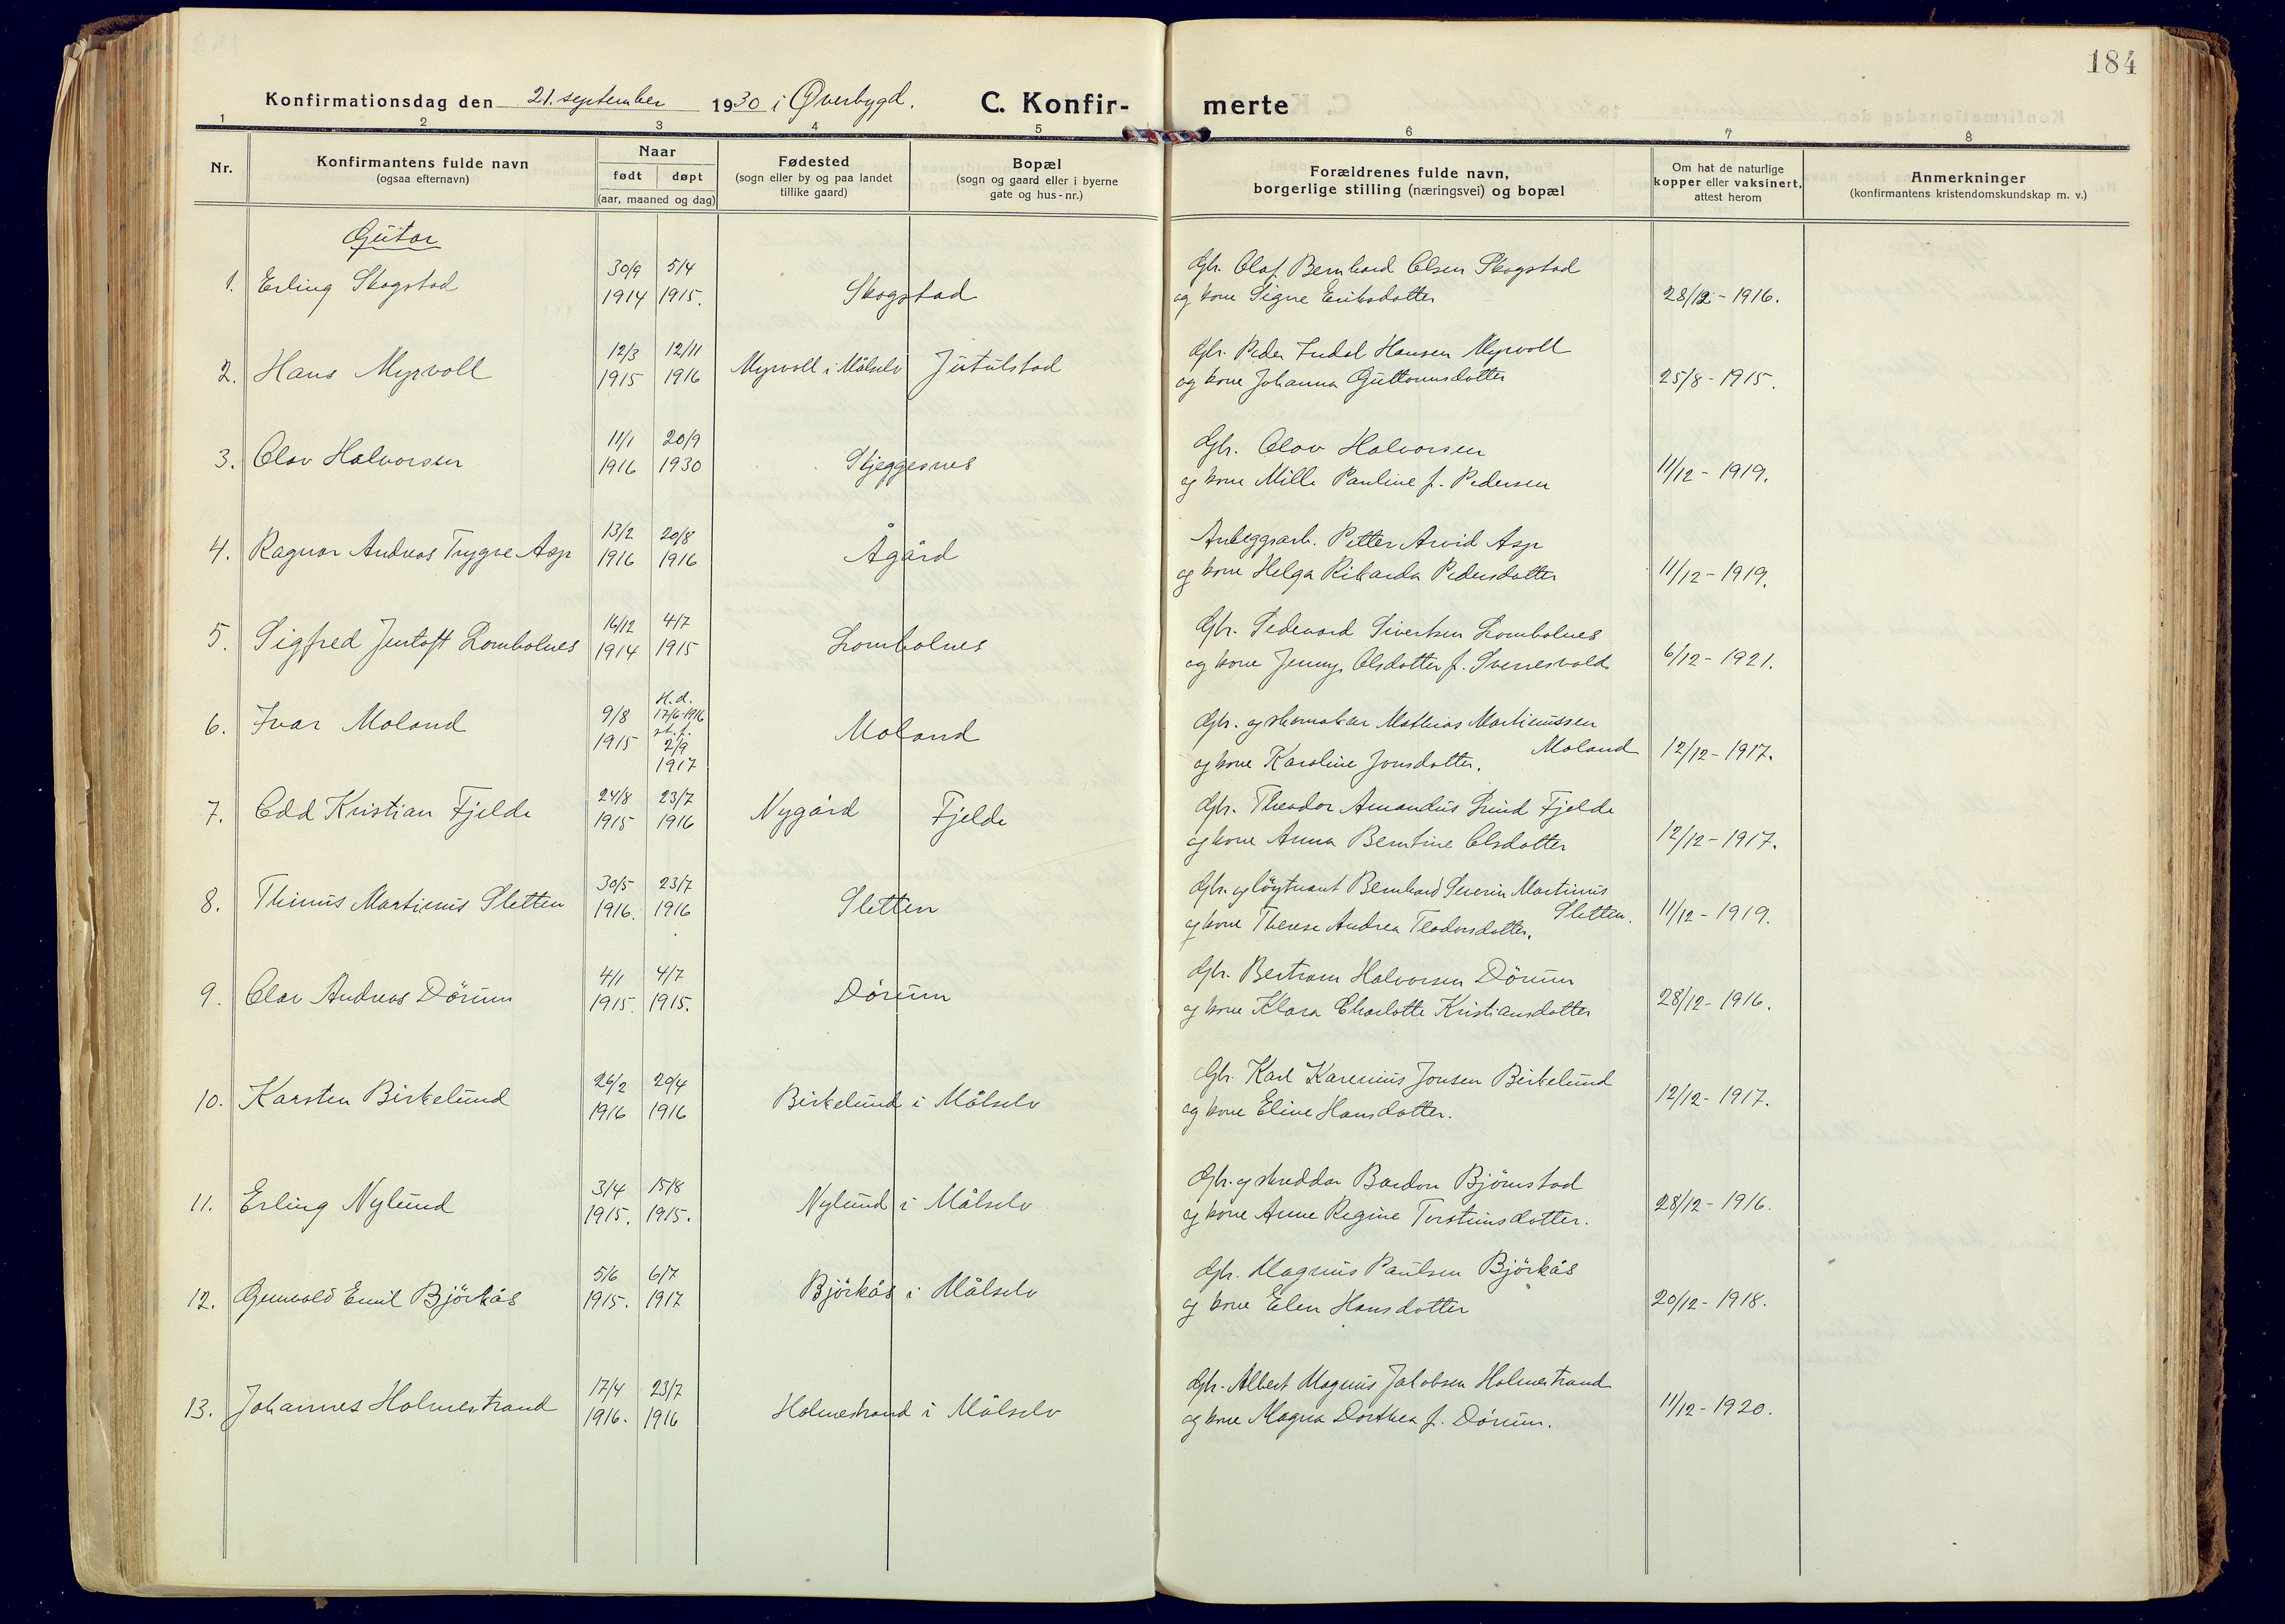 184
Konfirmationsdag den 21. september 1930 i Øverbygd. C. Konfir- merte
1 2 3 4 5 6 7 8
Nr.
Konfirmantens fulde navn
(ogsaa efternavn)
Naar
født døpt
(aar, maaned og dag)
Fødested
(sogn eller by og paa landet
tillike gaard)
Bopæl
(sogn og gaard eller i byerne
gate og hus-nr.)
Forældrenes fulde navn,
borgerlige stilling (næringsvei) og bopæl
Om hat de naturlige
kopper eller vaksinert,
attest herom
Anmerkninger
(konfirmantens kristendomskundskap m. v.)
Gutar
30/9 5/4 Gbr. Olaf Bernhard Olsen Skogstad
1. Erling Skogstad 1914 1915. Skogstad og kone Signe Eriksdotter 28/12 - 1916.
12/3 12/11 Gbr. Peder Indal Hansen Myrvoll
2. Hans Myrvoll 1915 1916 Myrvoll i Målselv Jutulstad og kone Johanna Guttormsdotter 25/8 - 1915.
11/1 20/9 Gbr. Olav Halvorsen
3. Olav Halvorsen 1916 1930 Skjeggesnes og kone Mille Pauline f. Pedersen 11/12 - 1919.
13/2 20/8 Anleggsarb. Petter Arvid Asp
4. Ragnar Andreas Trygve Asp 1916 1916 Ågård og kone Helga Rikarda Pedersdotter 11/12 - 1919.
16/12 4/7 Gbr. Sedevard Sivertsen Lombolnes
5. Sigfred Jentoft Lombolnes 1914 1915 Lombolnes og kone Jenny Olsdotter f. Svenesvold 6/12 - 1921.
H. d.
9/8 17/6-1916 Gbr. og skomakar Mathias Martinussen
6. Ivar Moland 1915 st. f. Moland Moland 12/12 - 1917.
2/9 og kone Karoline Jonsdotter.
1917
24/8 23/7 Gbr. Theodor Amandus Lund Fjelde
7. Odd Kristian Fjelde 1915 1916 Nygård Fjelde og kone Anna Berntine Olsdotter 12/12 - 1917.
30/5 23/7 Gbr. og løytnant Bernhard Severin Martinus
8. Thinus Martinus Sletten 1916. 1916 Sletten Sletten. 11/12 - 1919.
og kone Therese Andrea Teodorsdotter.
4/1 4/7 Gbr. Bertram Halvorsen Dörum
9. Olav Andreas Dörum 1915. 1915. Dörum og kone Klara Charlotte Kristiansdotter 28/12 - 1916.
26/2 20/4 Gbr. Karl Karenius Jonsen Birkelund
10. Karsten Birkelund 1916 1916 Birkelund i Målselv og kone Eline Hansdotter. 12/12 - 1917.
3/4 15/8 Gbr. og skreddar Bardon Björnstad
11. Erling Nylund 1915. 1915. Nylund i Målselv og kone Anne Regine Torsteinsdotter. 28/12 - 1916.
5/6 6/7 Gbr. Magnus Paulsen Björkås
12. Gunvald Emil Björkås 1915. 1917 Björkås i Målselv og kone Elen Hansdotter 20/12 - 1918.
17/4 23/7 Gbr. Albert Magnus Jakobsen Holmestrand
13. Johannes Holmestrand 1916. 1916 Holmestrand i Målselv og kone Magna Dorthea f. Dörum. 11/12 - 1920.